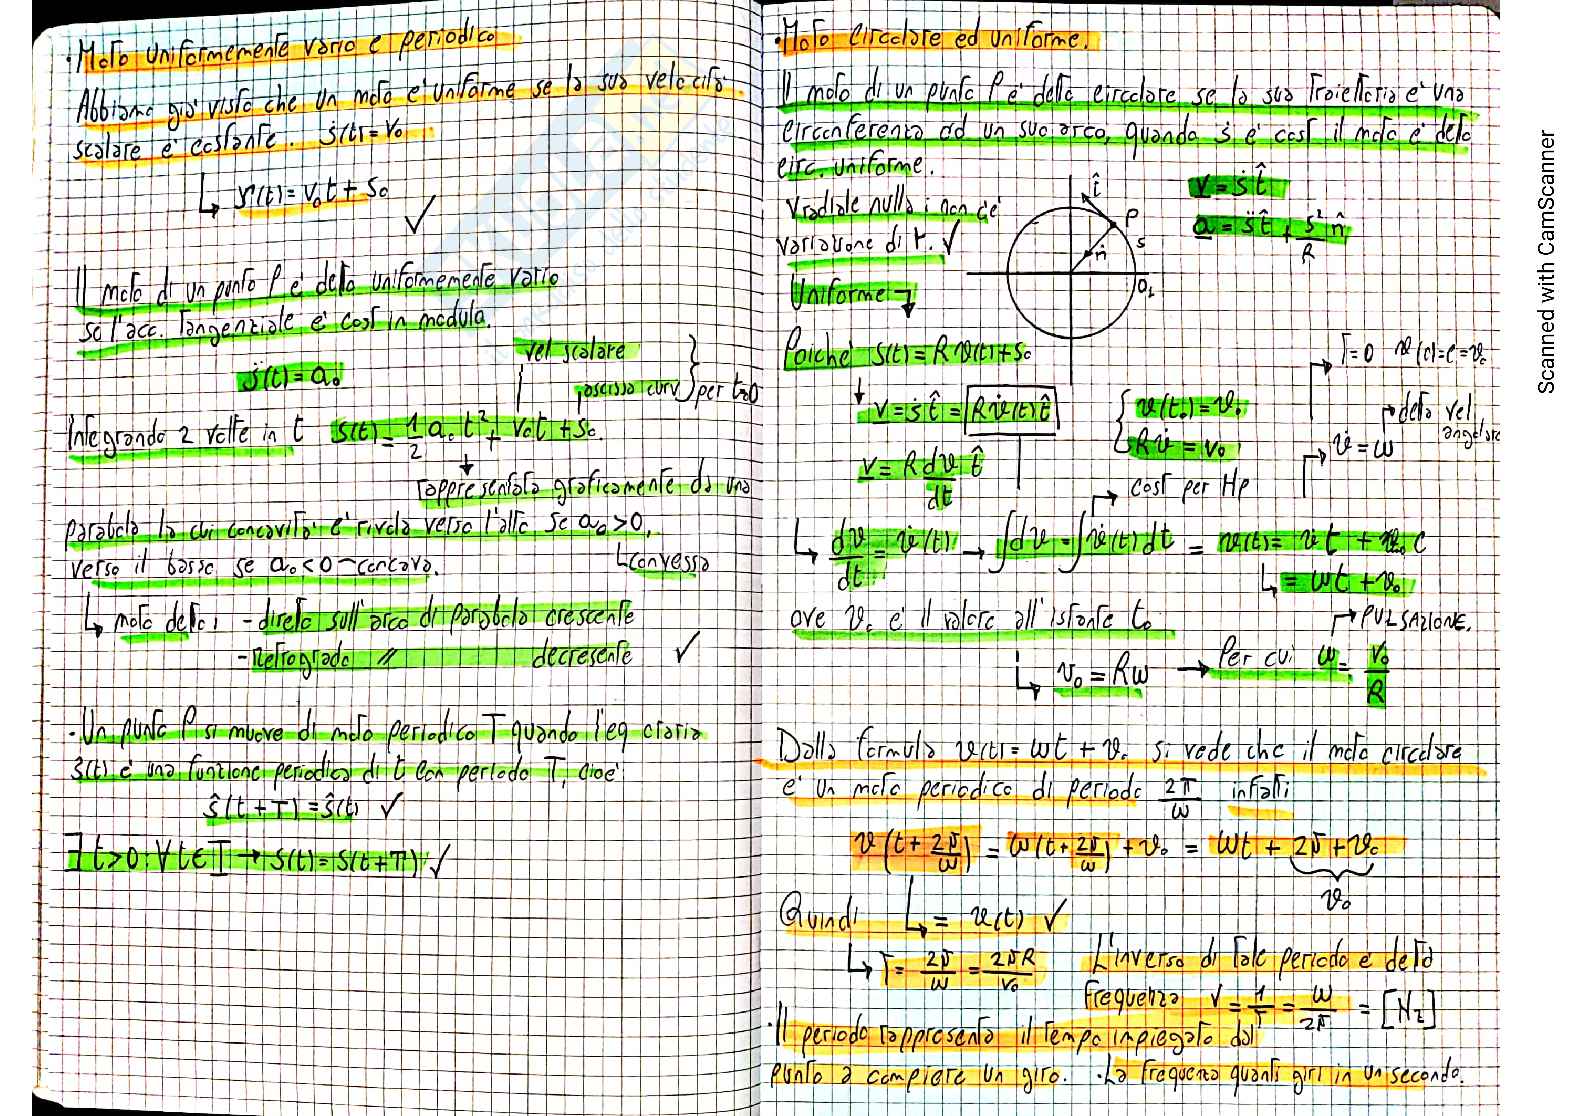 · Moto uniformemente vario e periodico
Abbiamo già visto che un moto e' uniforme se la sua velocità
scalare è costante. ṡ(t) = v₀
↳ s(t) = v₀t + s₀ ✓
Il moto di un punto P e' detto uniformemente vario
se l'acc. tangenziale e' cost in modulo.
s̈(t) = a₀
vel scalare
ascissa curv } per t=0
Integrando 2 volte in t s(t) = 1/2 a₀ t² + v₀t + s₀.
↓
rappresentata graficamente da una
parabola la cui concavità e' rivolta verso l'alto se a₀ > 0,
↳ convessa
verso il basso se a₀ < 0 → concava.
↳ moto detto: - diretto sull'arco di parabola crescente
- Retrogrado // decresente ✓
· Un punto P si muove di moto periodico T quando l'eq oraria
ŝ(t) è una funzione periodica di t con periodo T, cioe'
ŝ(t+T) = ŝ(t) ✓
∃ t>0 : ∀ t ∈ T → s(t) = s(t+T) ✓
· Moto Circolare ed uniforme.
Il moto di un punto P e' detto circolare se la sua traiettoria e' una
circonferenza od un suo arco, quando ṡ e' cost il moto è detto
circ. uniforme.
v radiale nulla; non c'è
variazione di r. ✓
t̂
P
s
n̂
O₁
v = ṡ t̂
a = s̈ t̂ + ṡ²/R n̂
Uniforme ↴
Poiche' s(t) = Rϑ(t) + s₀
T=0 ϑ(0) = c = ϑ₀
↓ v = ṡ t̂ = Rϑ̇(t) t̂
{ ϑ(t₀) = ϑ₀
Rϑ̇ = v₀
detta vel
angolare
ϑ̇ = ω
v = R dϑ/dt t̂
cost per Hp
↳ dϑ/dt = ϑ̇(t) → ∫dϑ = ∫ϑ̇(t) dt = ϑ(t) = ϑ̇ t + c
↳ = ωt + ϑ₀
ove ϑ₀ e' il valore all'istante t₀
→ PULSAZIONE.
↳ v₀ = Rω → Per cui ω = v₀/R
Dalla formula ϑ(t) = ωt + ϑ₀ si vede che il moto circolare
e' un moto periodico di periodo 2π/ω infatti
ϑ(t + 2π/ω) = ω(t + 2π/ω) + ϑ₀ = ωt + 2π + ϑ₀
ϑ₀
Quindi ↳ = ϑ(t) ✓
↳ T = 2π/ω = 2πR/v₀
L'inverso di tale periodo e detto
frequenza ν = 1/T = ω/2π = [Hz]
· Il periodo rappresenta il tempo impiegato dal
punto a compiere un giro. · La frequenza quanti giri in un secondo.
Scanned with CamScanner